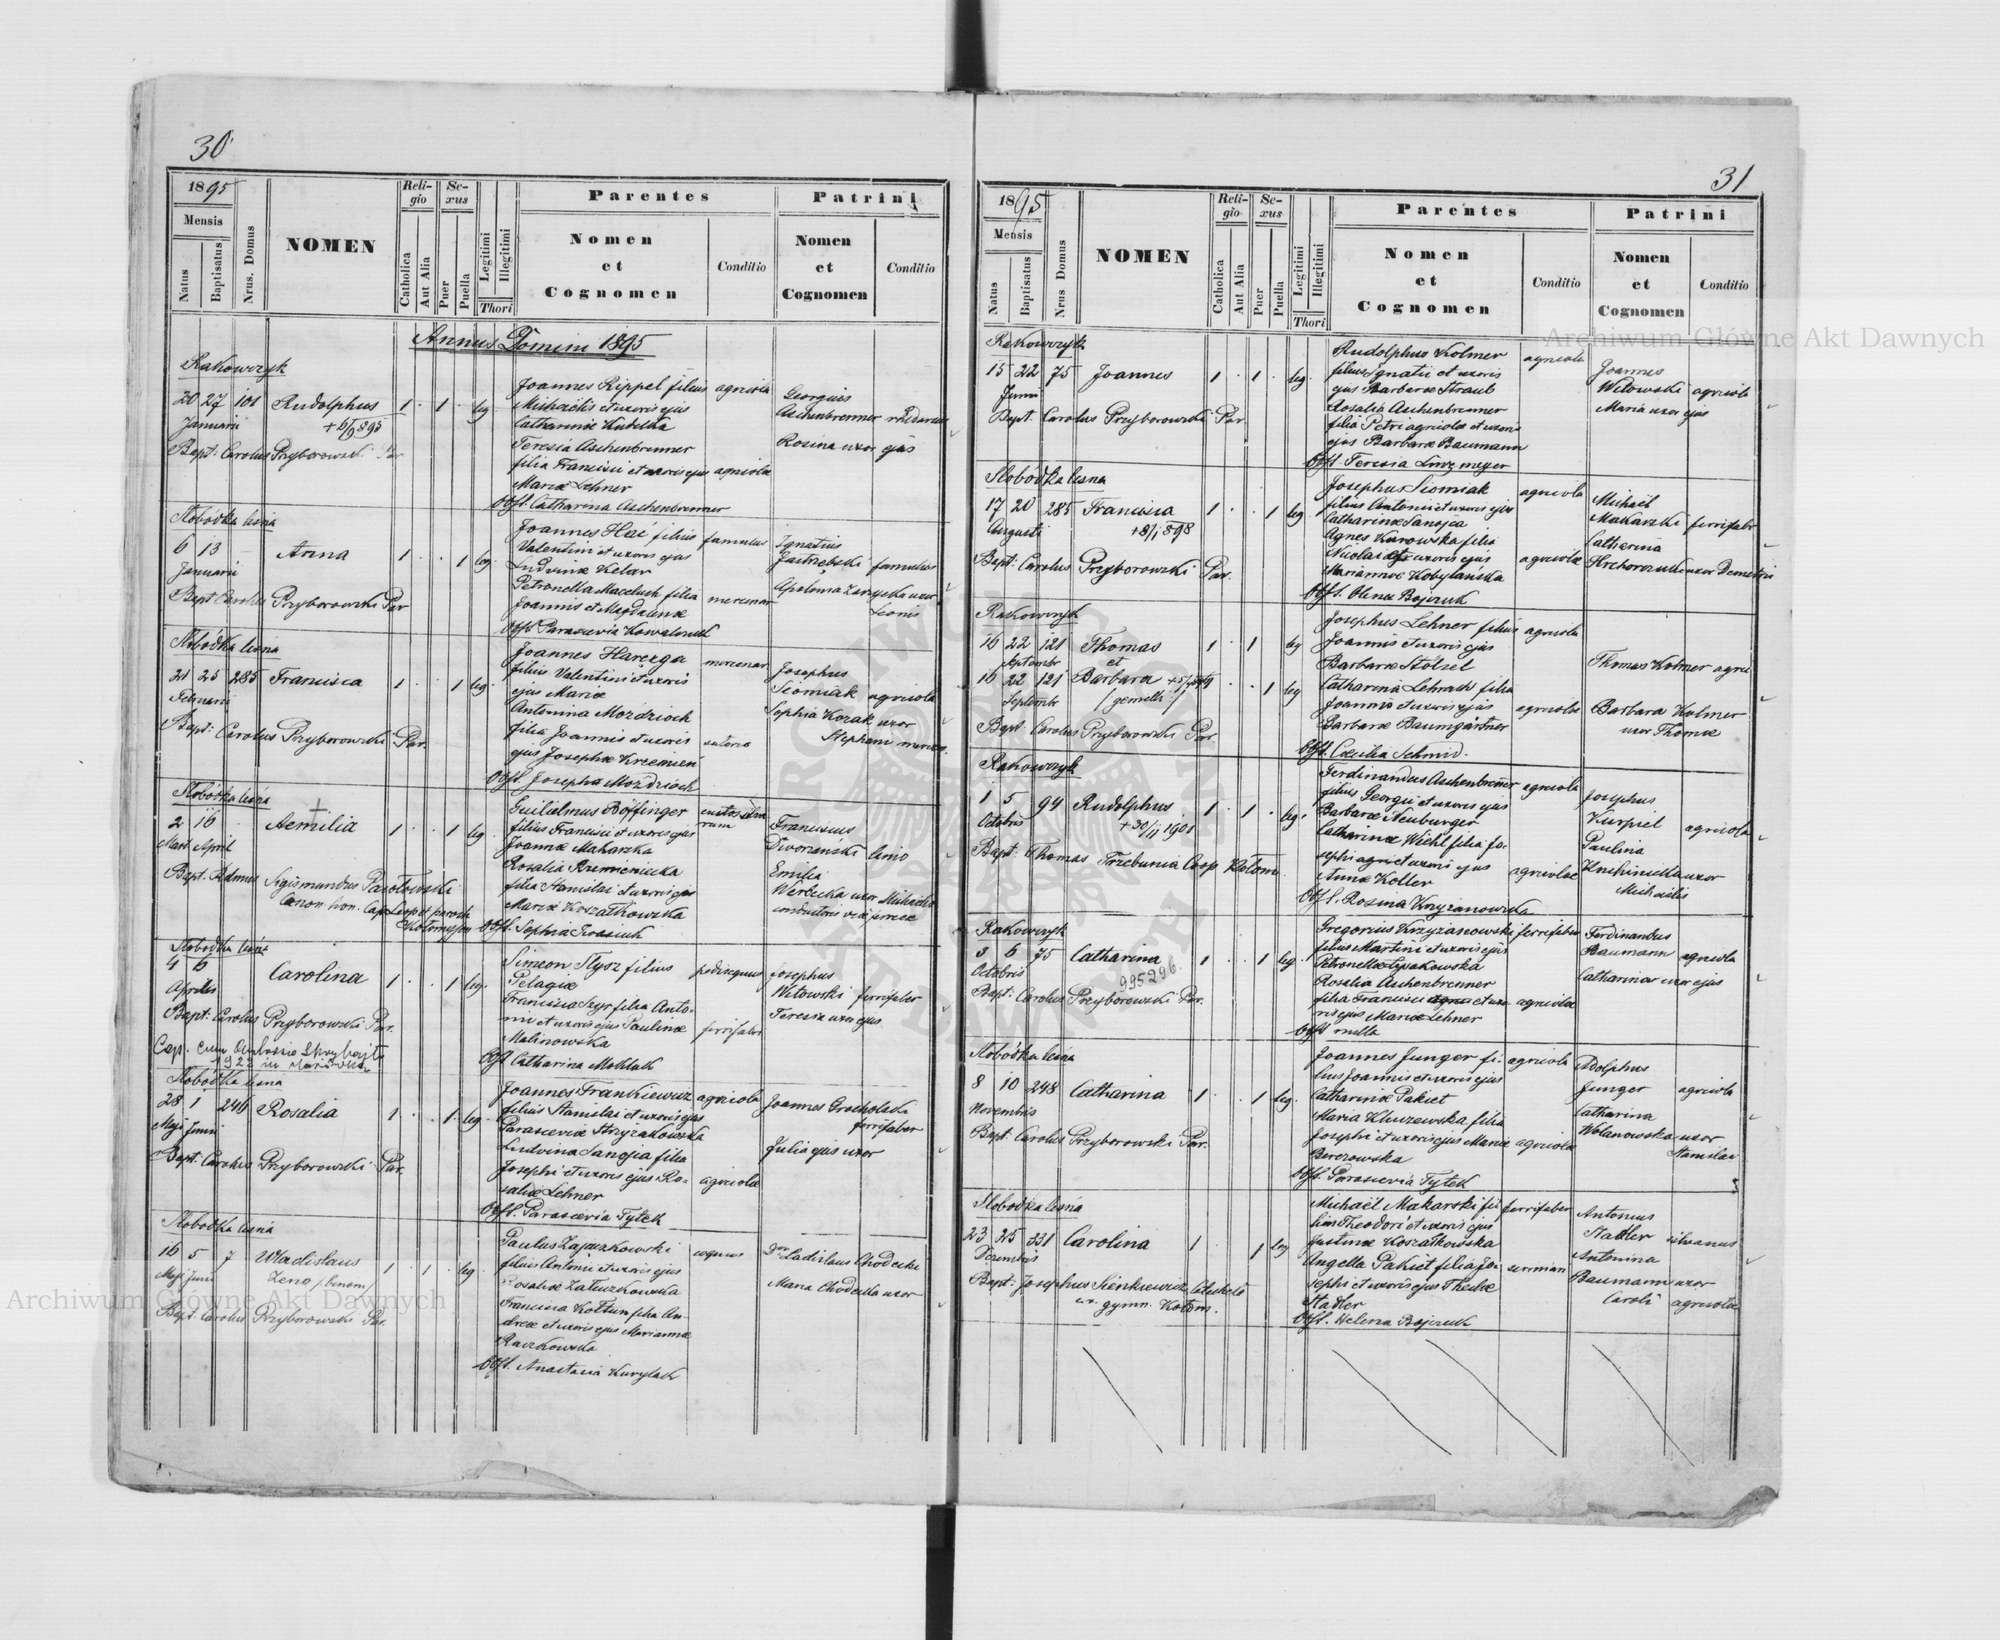 30
1895
Mensis
Natus
Baptisatus
Nrus. Domus
NOMEN
Religio
Catholica
Aut Alia
Sexus
Puer
Puella
Legitimi
Illegitimi
Thori
Parentes
Nomen
et
Cognomen
Conditio
Patrini
Nomen
et
Cognomen
Conditio
Annus Domini 1895
Rakowczyk
20 27 101 Rudolphus 1 1 leg
Januarii
Bapt: Carolus Przyborowski Par
Joannes Rippel filius agricola
Michaelis et uxoris ejus
Catharinae
Teresia Aschenbrenner
filia Francisci et uxoris ejus agricolae
Mariae Lehner
Obst. Catharina Aschenbrenner
Georgius
Aschenbrenner
Rosina uxor ejus
Słobódka leśna
6 13 Anna 1 1 leg
Januarii
Bapt Carolus Przyborowski Par
Joannes Hać filius famulus
Valentini et uxoris ejus
Ludvinae
Petronella Maceluch filia mercenar
Joannis et Magdalenae
Obst Parascevia Kowalczuk
Ignatius
Jastrzebski famulus
Apolonia Zarzycka uxor
Leonis
Słobódka leśna
21 25 285 Francisca 1 1 leg
Februarii
Bapt: Carolus Przyborowski Par.
Joannes Harezga mercenar
filius Valentini et uxoris
ejus Mariae
Antonina Mozdzioch
filia Joannis et uxoris
ejus Josephae Krzemień
Obst. Josepha Mozdzioch
Josephus
Siomiak agricola
Sophia Kozak uxor
Stephani
Słobódka leśna
2 16 Aemilia 1 1 leg
Mart. April
Bapt. Rdmus Sigismundus
Canon. hon. Cap.
Guilelmus Böffinger custos silvarum
filius Francisci et uxoris ejus
Joannae Maharzka
Rosalia
filia Stanislai et uxoris ejus
Mariae Koszałkowska
Obst. Sophia Iwasiuk
Franciscus
Dworzanski
Emilia
Werbicka uxor Michaelis
conductoris
Słobódka leśna
4 6 Carolina 1 1 leg.
Aprilis
Bapt: Carolus Przyborowski Par.
Simeon Stysz filius
Pelagiae
Francisca Szyr filia Anto-
nii et uxoris ejus Paulinae ferrifabri
Malinowska
Obst Catharina
Josephus
Witowski ferrifaber
Teresia uxor ejus
Słobódka leśna
28 1 246 Rosalia 1 1 leg.
Maji Junii
Bapt: Carolus Przyborowski Par.
Joannes Frankiewicz agricola
filius Stanislai et uxoris ejus
Parasceviae Strzyżakowska
Ludvina Sanojca filia
Josephi et uxoris ejus Ro- agricolae
saliae Lehner
Obst. Parascevia Tytek
Joannes Grocholski
ferrifaber
Julia ejus uxor
Słobódka leśna
16 5 7 Wladislaus 1 1 leg
Maji Junii Zeno
Bapt. Carolus Przyborowski Par.
Paulus Zajaczkowski
filius Antonii et uxoris ejus
Rosaliae Załuczkowska
Francisca Kołtun filia An-
dreae et uxoris ejus Mariannae
Raczkowska
Obst. Anastasia Kurylak
Ladislaus Chodecki
Maria Chodecka uxor
31
1895
Mensis
Natus
Baptisatus
Nrus. Domus
NOMEN
Religio
Catholica
Aut Alia
Sexus
Puer
Puella
Legitimi
Illegitimi
Thori
Parentes
Nomen
et
Cognomen
Conditio
Patrini
Nomen
et
Cognomen
Conditio
Rakowczyk
15 22 75 Joannes 1 1 leg
Junii
Bapt. Carolus Przyborowski Par.
Rudolphus Kolmer agricola
filius Ignatii et uxoris
ejus Barbarae Straub
Rosalia Aschenbrenner
filia Petri agricolae et uxoris
ejus Barbarae Baumann
Obst. Teresia Linzmeyer
Joannes
Witowski agricola
Maria uxor ejus
Słobódka leśna
17 20 285 Francisca 1 1 leg
Augusti
Bapt: Carolus Przyborowski Par.
Josephus Siomiak agricola
filius Antonii et uxoris ejus
Catharinae Sanojca
Agnes Kurowska filia
Nicolai et uxoris ejus agricolae
Mariannae Kobylańska
Obst. Olena Bojczuk
Michael
Makarski ferrifaber
Catharina
uxor Demetrii
Rakowczyk
16 22 121 Thomas 1 1 leg
Septembr et
16 22 121 Barbara 1 leg
Septembr (gemelli)
Bapt. Carolus Przyborowski Par.
Josephus Lehner filius agricola
Joannis et uxoris ejus
Barbarae Stölzel
Catharina Lehrach filia
Joannis et uxoris ejus agricolae
Barbarae Baumgärtner
Obst. Caecilia Schmid.
Thomas Kolmer agric
Barbara Kolmer
uxor Thomae
Rakowczyk
1 5 94 Rudolphus 1 1 leg.
Octobris +30/11 1901
Bapt: Thomas Trzebunia Coop. Kołom.
Ferdinandus Aschenbrenner agricola
filius Georgii et uxoris ejus
Barbarae Neuburger
Catharina Wiehl filia Jo-
sephi agric et uxoris ejus agricolae
Annae Koller
Obst. Rosina Krzyżanowska
Josephus
Kurpiel agricola
Paulina
Knihinicka uxor
Michaelis
Rakowczyk
3 6 75 Catharina 1 1 leg.
Octobris 995296.
Bapt: Carolus Przyborowski Par.
Gregorius Krzyżanowski ferrifaber
filius Martini et uxoris ejus
Petronellae Lysakowska
Rosalia Aschenbrenner
filia Francisci et uxo- agricolae
ris ejus Mariae Lehner
Obst nulla
Ferdinandus
Baumann agricola
Catharina uxor ejus
Słobódka leśna
8 10 248 Catharina 1 1 leg.
Novembris
Bapt: Carolus Przyborowski Par.
Joannes Junger fi- agricola
lius Joannis et uxoris ejus
Catharinae Pakiet
Maria Kluczewska filia
Josephi et uxoris ejus Mariae agricolae
Berezowska
Obst. Parascevia Tytek
Adolphus
Junger agricola
Catharina
Wolanowska uxor
Stanislai
Słobódka leśna
23 25 331 Carolina 1 1 leg
Decembris
Bapt: Josephus Sienkiewicz Catecheta
gymn. Kołom.
Michaël Makarski fi- ferrifaber
lius Theodori et uxoris ejus
Justinae Koszałkowska
Angella Pakiet filia Jo-
sephi et uxoris ejus Theclae
Stadler
Obst. Helena Bojczuk
Antonius
Stadler silvanus
Antonina
Baumann uxor
Caroli agricolae
Archiwum Główne Akt Dawnych
Archiwum Główne Akt Dawnych